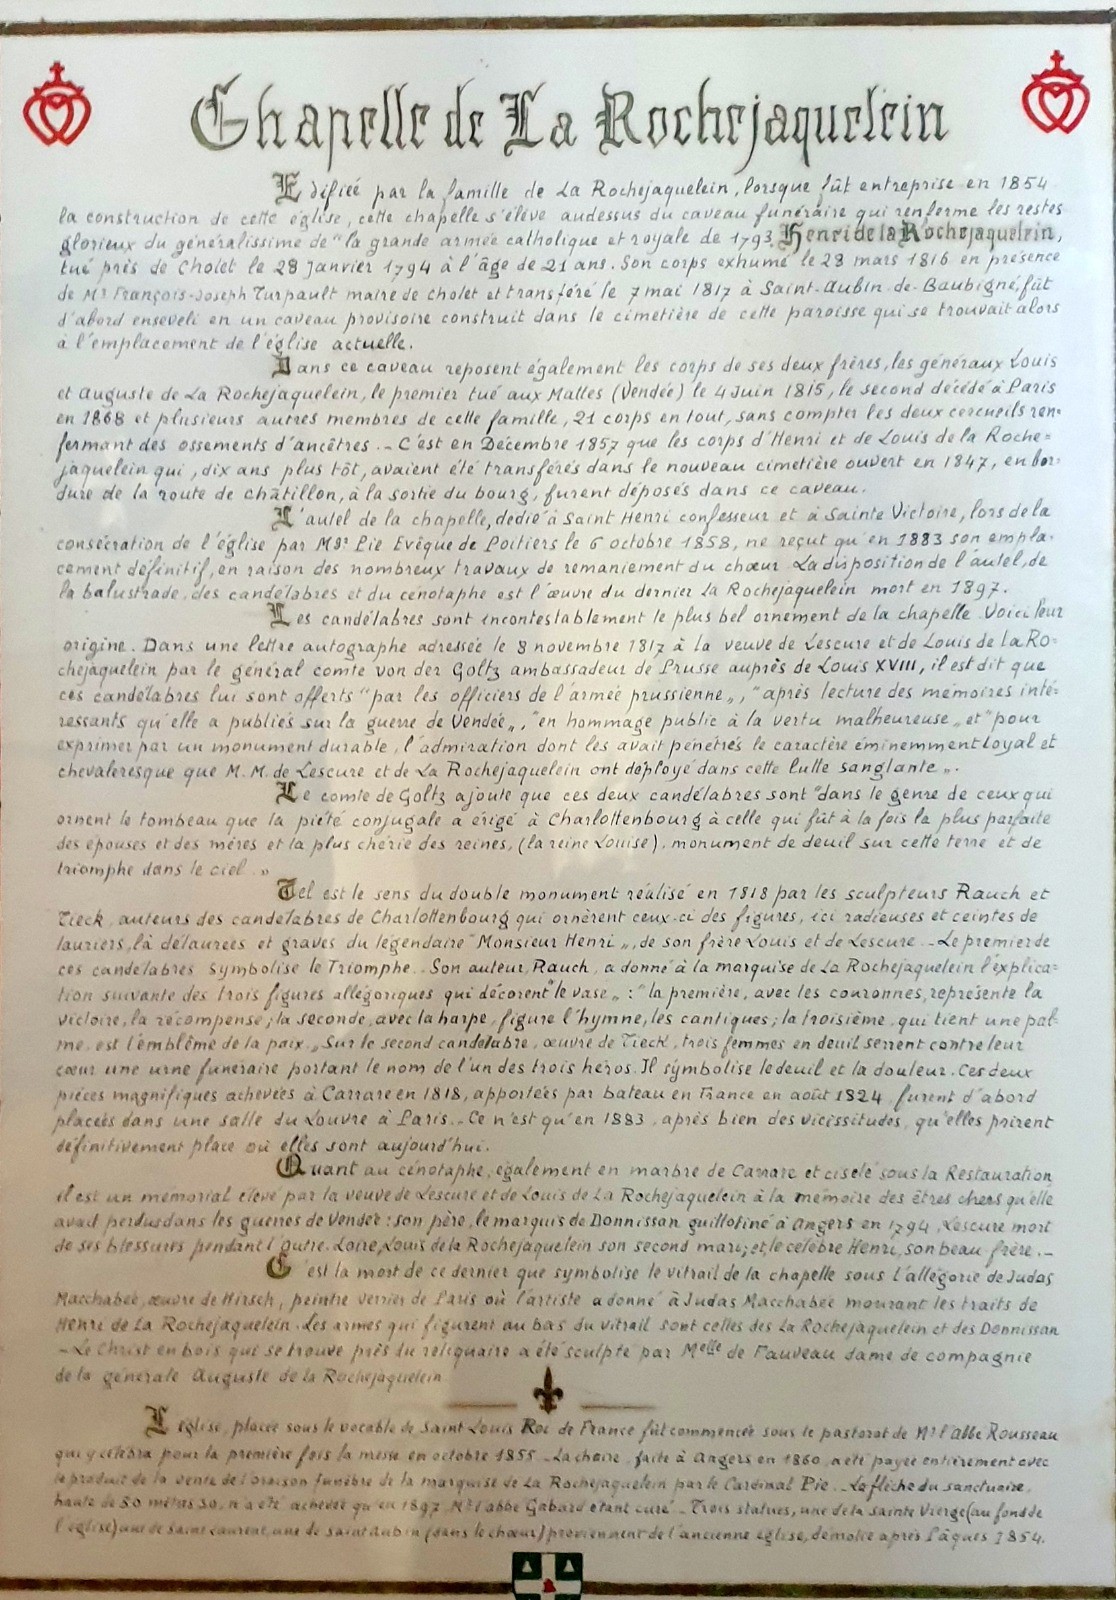 Chapelle de La Rochejaquelein
Edifiée par la famille de La Rochejaquelein, lorsque fût entreprise en 1854
la construction de cette église, cette chapelle s'élève audessus du caveau funéraire qui renferme les restes
glorieux du généralissime de "la grande armée catholique et royale de 1793, Henri de la Rochejaquelein,
tué près de Cholet le 28 Janvier 1794 à l'âge de 21 ans. Son corps exhumé le 28 mars 1816 en présence
de Mr François-Joseph Turpault maire de Cholet et transféré le 7 mai 1817 à Saint-Aubin-de-Baubigné, fût
d'abord enseveli en un caveau provisoire construit dans le cimetière de cette paroisse qui se trouvait alors
à l'emplacement de l'église actuelle.
Dans ce caveau reposent également les corps de ses deux frères, les généraux Louis
et Auguste de La Rochejaquelein, le premier tué aux Mattes (Vendée) le 4 Juin 1815, le second décédé à Paris
en 1868 et plusieurs autres membres de cette famille, 21 corps en tout, sans compter les deux cercueils ren-
fermant des ossements d'ancêtres. - C'est en Décembre 1857 que les corps d'Henri et de Louis de la Roche=
jaquelein qui, dix ans plus tôt, avaient été transférés dans le nouveau cimetière ouvert en 1847, en bor-
dure de la route de châtillon, à la sortie du bourg, furent déposés dans ce caveau.
L'autel de la chapelle, dédié à Saint Henri confesseur et à Sainte Victoire, lors de la
consécration de l'église par Mgr Pie Evêque de Poitiers le 6 octobre 1858, ne reçut qu'en 1883 son empla-
cement définitif, en raison des nombreux travaux de remaniement du chœur. La disposition de l'autel, de
la balustrade, des candélabres et du cénotaphe est l'œuvre du dernier La Rochejaquelein mort en 1897.
Les candélabres sont incontestablement le plus bel ornement de la chapelle. Voici leur
origine. Dans une lettre autographe adressée le 8 novembre 1817 à la veuve de Lescure et de Louis de la Ro-
chejaquelein par le général comte von der Goltz ambassadeur de Prusse auprès de Louis XVIII, il est dit que
ces candélabres lui sont offerts "par les officiers de l'armée prussienne„, "après lecture des mémoires inté-
ressants qu'elle a publiés sur la guerre de Vendée„, "en hommage public à la vertu malheureuse„ et "pour
exprimer par un monument durable, l'admiration dont les avait pénétrés le caractère éminemment loyal et
chevaleresque que M.M. de Lescure et de La Rochejaquelein ont déployé dans cette lutte sanglante„.
Le comte de Goltz ajoute que ces deux candélabres sont "dans le genre de ceux qui
ornent le tombeau que la piété conjugale a érigé à Charlottenbourg à celle qui fût à la fois la plus parfaite
des épouses et des mères et la plus chérie des reines, (la reine Louise), monument de deuil sur cette terre et de
triomphe dans le ciel. »
Tel est le sens du double monument réalisé en 1818 par les sculpteurs Rauch et
Tieck, auteurs des candélabres de Charlottenbourg qui ornèrent ceux-ci des figures, ici radieuses et ceintes de
lauriers, là délaurées et graves du légendaire "Monsieur Henri„, de son frère Louis et de Lescure. - Le premier de
ces candélabres symbolise le Triomphe. Son auteur, Rauch, a donné à la marquise de La Rochejaquelein l'explica-
tion suivante des trois figures allégoriques qui décorent "le vase„ : "la première, avec les couronnes, représente la
victoire, la récompense; la seconde, avec la harpe, figure l'hymne, les cantiques; la troisième, qui tient une pal-
me, est l'emblême de la paix.„ Sur le second candélabre, œuvre de Tieck, trois femmes en deuil serrent contre leur
cœur une urne funéraire portant le nom de l'un des trois héros. Il symbolise le deuil et la douleur. Ces deux
pièces magnifiques achevées à Carrare en 1818, apportées par bateau en France en août 1824 furent d'abord
placées dans une salle du Louvre à Paris. - Ce n'est qu'en 1883, après bien des vicissitudes, qu'elles prirent
définitivement place où elles sont aujourd'hui.
Quant au cénotaphe, également en marbre de Carrare et ciselé sous la Restauration,
il est un mémorial élevé par la veuve de Lescure et de Louis de La Rochejaquelein à la mémoire des êtres chers qu'elle
avait perdus dans les guerres de Vendée: son père, le marquis de Donnissan guillotiné à Angers en 1794, Lescure mort
de ses blessures pendant l'Outre-Loire, Louis de la Rochejaquelein son second mari, et, le célèbre Henri, son beau-frère. -
C'est la mort de ce dernier que symbolise le vitrail de la chapelle sous l'allégorie de Judas
Macchabée, œuvre de Hirsch, peintre verrier de Paris où l'artiste a donné à Judas Macchabée mourant les traits de
Henri de La Rochejaquelein. Les armes qui figurent au bas du vitrail sont celles des La Rochejaquelein et des Donnissan
- Le Christ en bois qui se trouve près du reliquaire a été sculpté par Melle de Fauveau dame de compagnie
de la générale Auguste de la Rochejaquelein
L'église, placée sous le vocable de Saint Louis Roi de France fût commencée sous le pastorat de Mr l'abbé Rousseau
qui y célébra pour la première fois la messe en octobre 1855. - La chaire, faite à Angers en 1860, a été payée entièrement avec
le produit de la vente de l'oraison funèbre de la marquise de La Rochejaquelein par le Cardinal Pie. - La flèche du sanctuaire,
haute de 30 mètres 30, n'a été achevée qu'en 1897, Mr l'abbé Gabard étant curé. - Trois statues, une de la Sainte Vierge (au fond de
l'église) une de Saint Laurent, une de Saint Aubin (dans le chœur) proviennent de l'ancienne église, démolie après Pâques 1854.